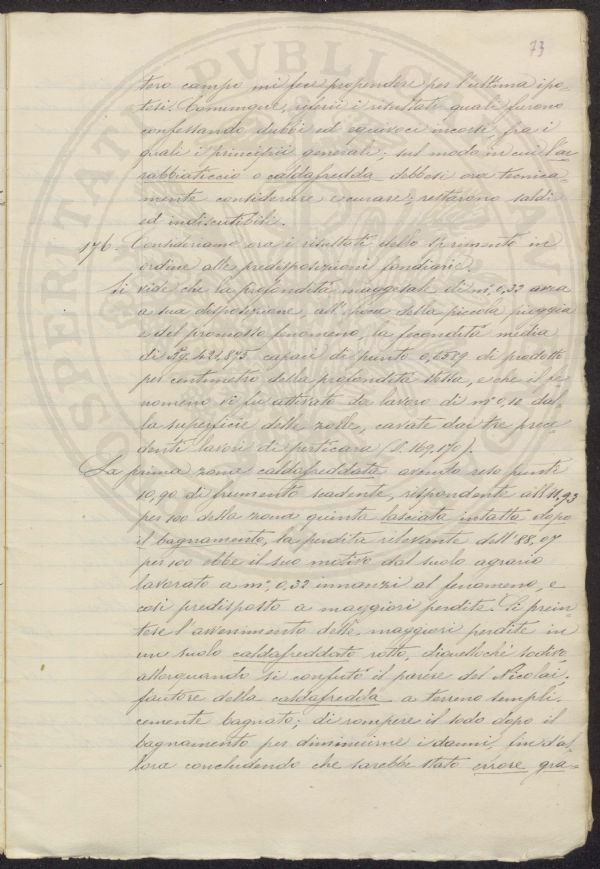 73
tero campo mi fece propendere per l'ultima ipo-
tesi. Comunque, riferii i risultati quali furono
confessando dubbi ed equivoci incorsi, fra i
quali i principii generali, sul modo in cui l'ar-
rabbiaticcio o caldafredda debbesi ora tecnica-
mente considerare e curare, restarono saldi
ed indiscutibili.
176. Consideriamo ora i risultati dello sperimento in
ordine alle predisposizioni fondiarie.
Si vide che la profondità maggesale di m. 0,32 aveva
a sua disposizione, all'epoca della piccola pioggia
e del promosso fenomeno, la fecondità media
di capaci di punto di prodotto
per centimetro della profondità stessa, e che il fe-
nomeno vi fu attivato da lavoro di m. 0,10 dal-
la superficie delle zolle, cavate dai tre prece-
denti lavori di perticara (§. 169, 170).
La prima zona caldafreddata avendo reso punti
10,90 di frumento scadente, rispondente all'11,93
per 100 della zona quinta lasciata intatta dopo
il bagnamento, la perdita rilevante dell'88,07
per 100 ebbe il suo motivo dal suolo agrario
lavorato a m. 0,32 innanzi al fenomeno, e
così predisposto a maggiori perdite. Si prein-
tese l'avvenimento delle maggiori perdite in
un suolo caldafreddato rotto, di quello che sodivo
allorquando si confutò il parere del Nicolai,
fautore della caldafredda a terreno sempli-
cemente bagnato; di rompere il sodo dopo il
bagnamento per diminuirne i danni, fin d'al-
lora concludendo che sarebbe stato errore gra-